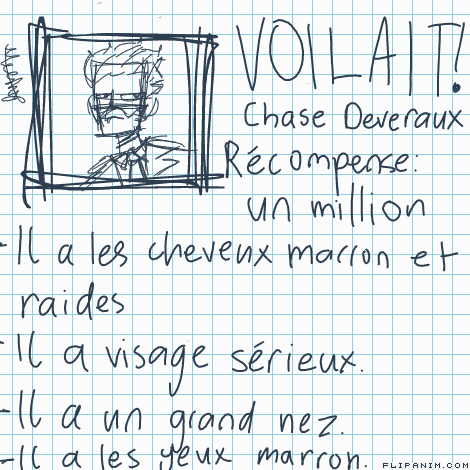 VOILAIT!
Chase Deveraux
Récompense:
un million
-Il a les cheveux marron et
raides
-Il a visage sérieux.
-Il a un grand nez.
-Il a les yeux marron.
FLIPANIM.COM